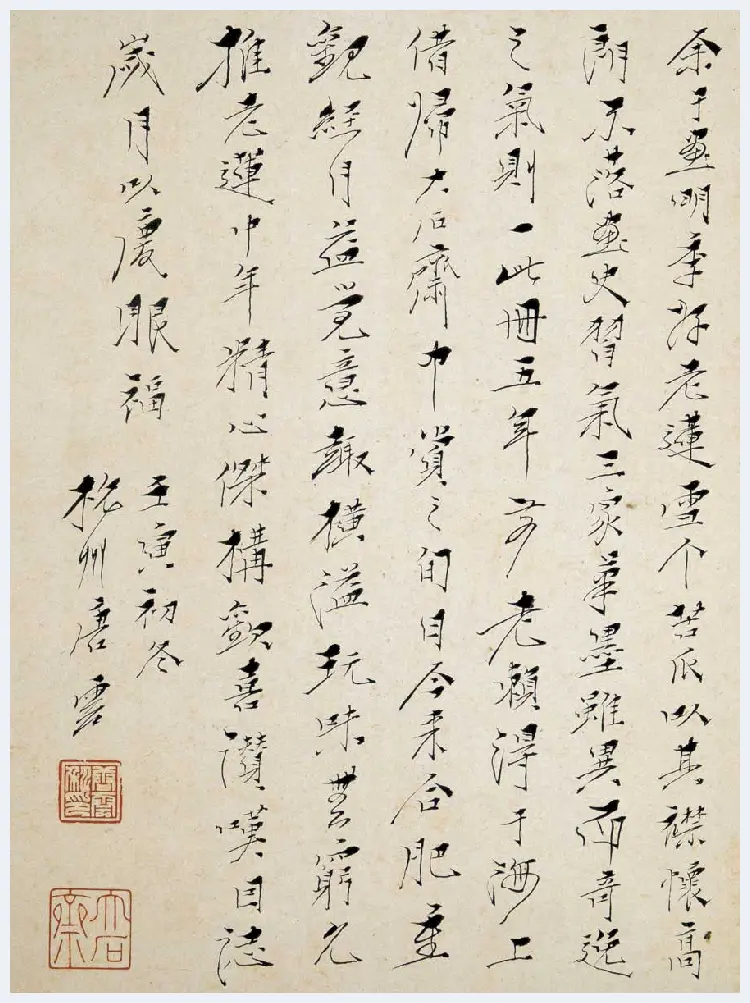 余于畫明季好老蓮雪个苦瓜以其襟懷高
朗不落畫史習氣三家筆墨雖異而奇逸
之氣則一此冊五年前老賴得于海上
借歸大石齋中賞之旬日今來合肥重
觀經月益覺意趣橫溢玩味無窮允
推老蓮中年精心傑構歡喜讚嘆因誌
歲月以慶眼福
壬寅初冬
杭州唐雲
大石齋